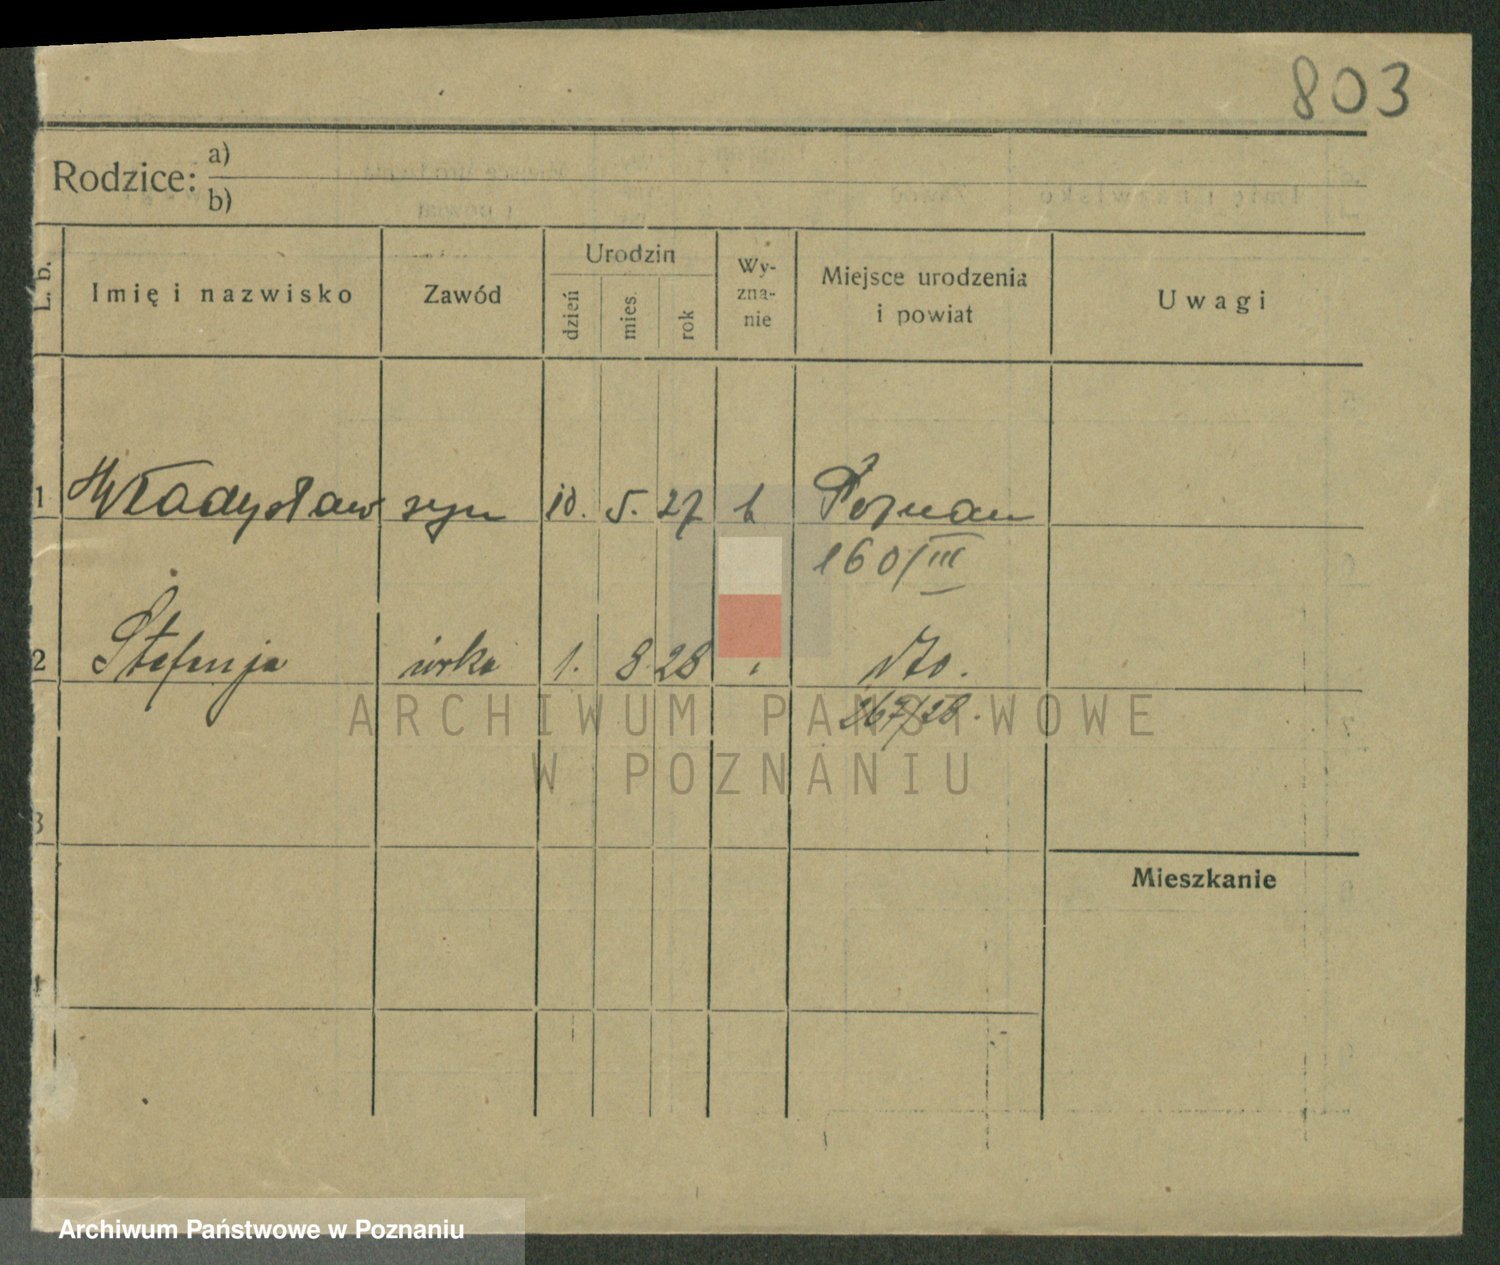 803
Rodzice: a)
b)
L. b.
Imię i nazwisko
Zawód
Urodzin
dzień
mies.
rok
Wy-
zna-
nie
Miejsce urodzenia
i powiat
Uwagi
1 Władysław syn 10. 5. 27 k Poznan
160/III
2 Stefanja córka 1. 8. 28 "
267/28.
ARCHIWUM PAŃSTWOWE
W POZNANIU
3
Mieszkanie
4
Archiwum Państwowe w Poznaniu